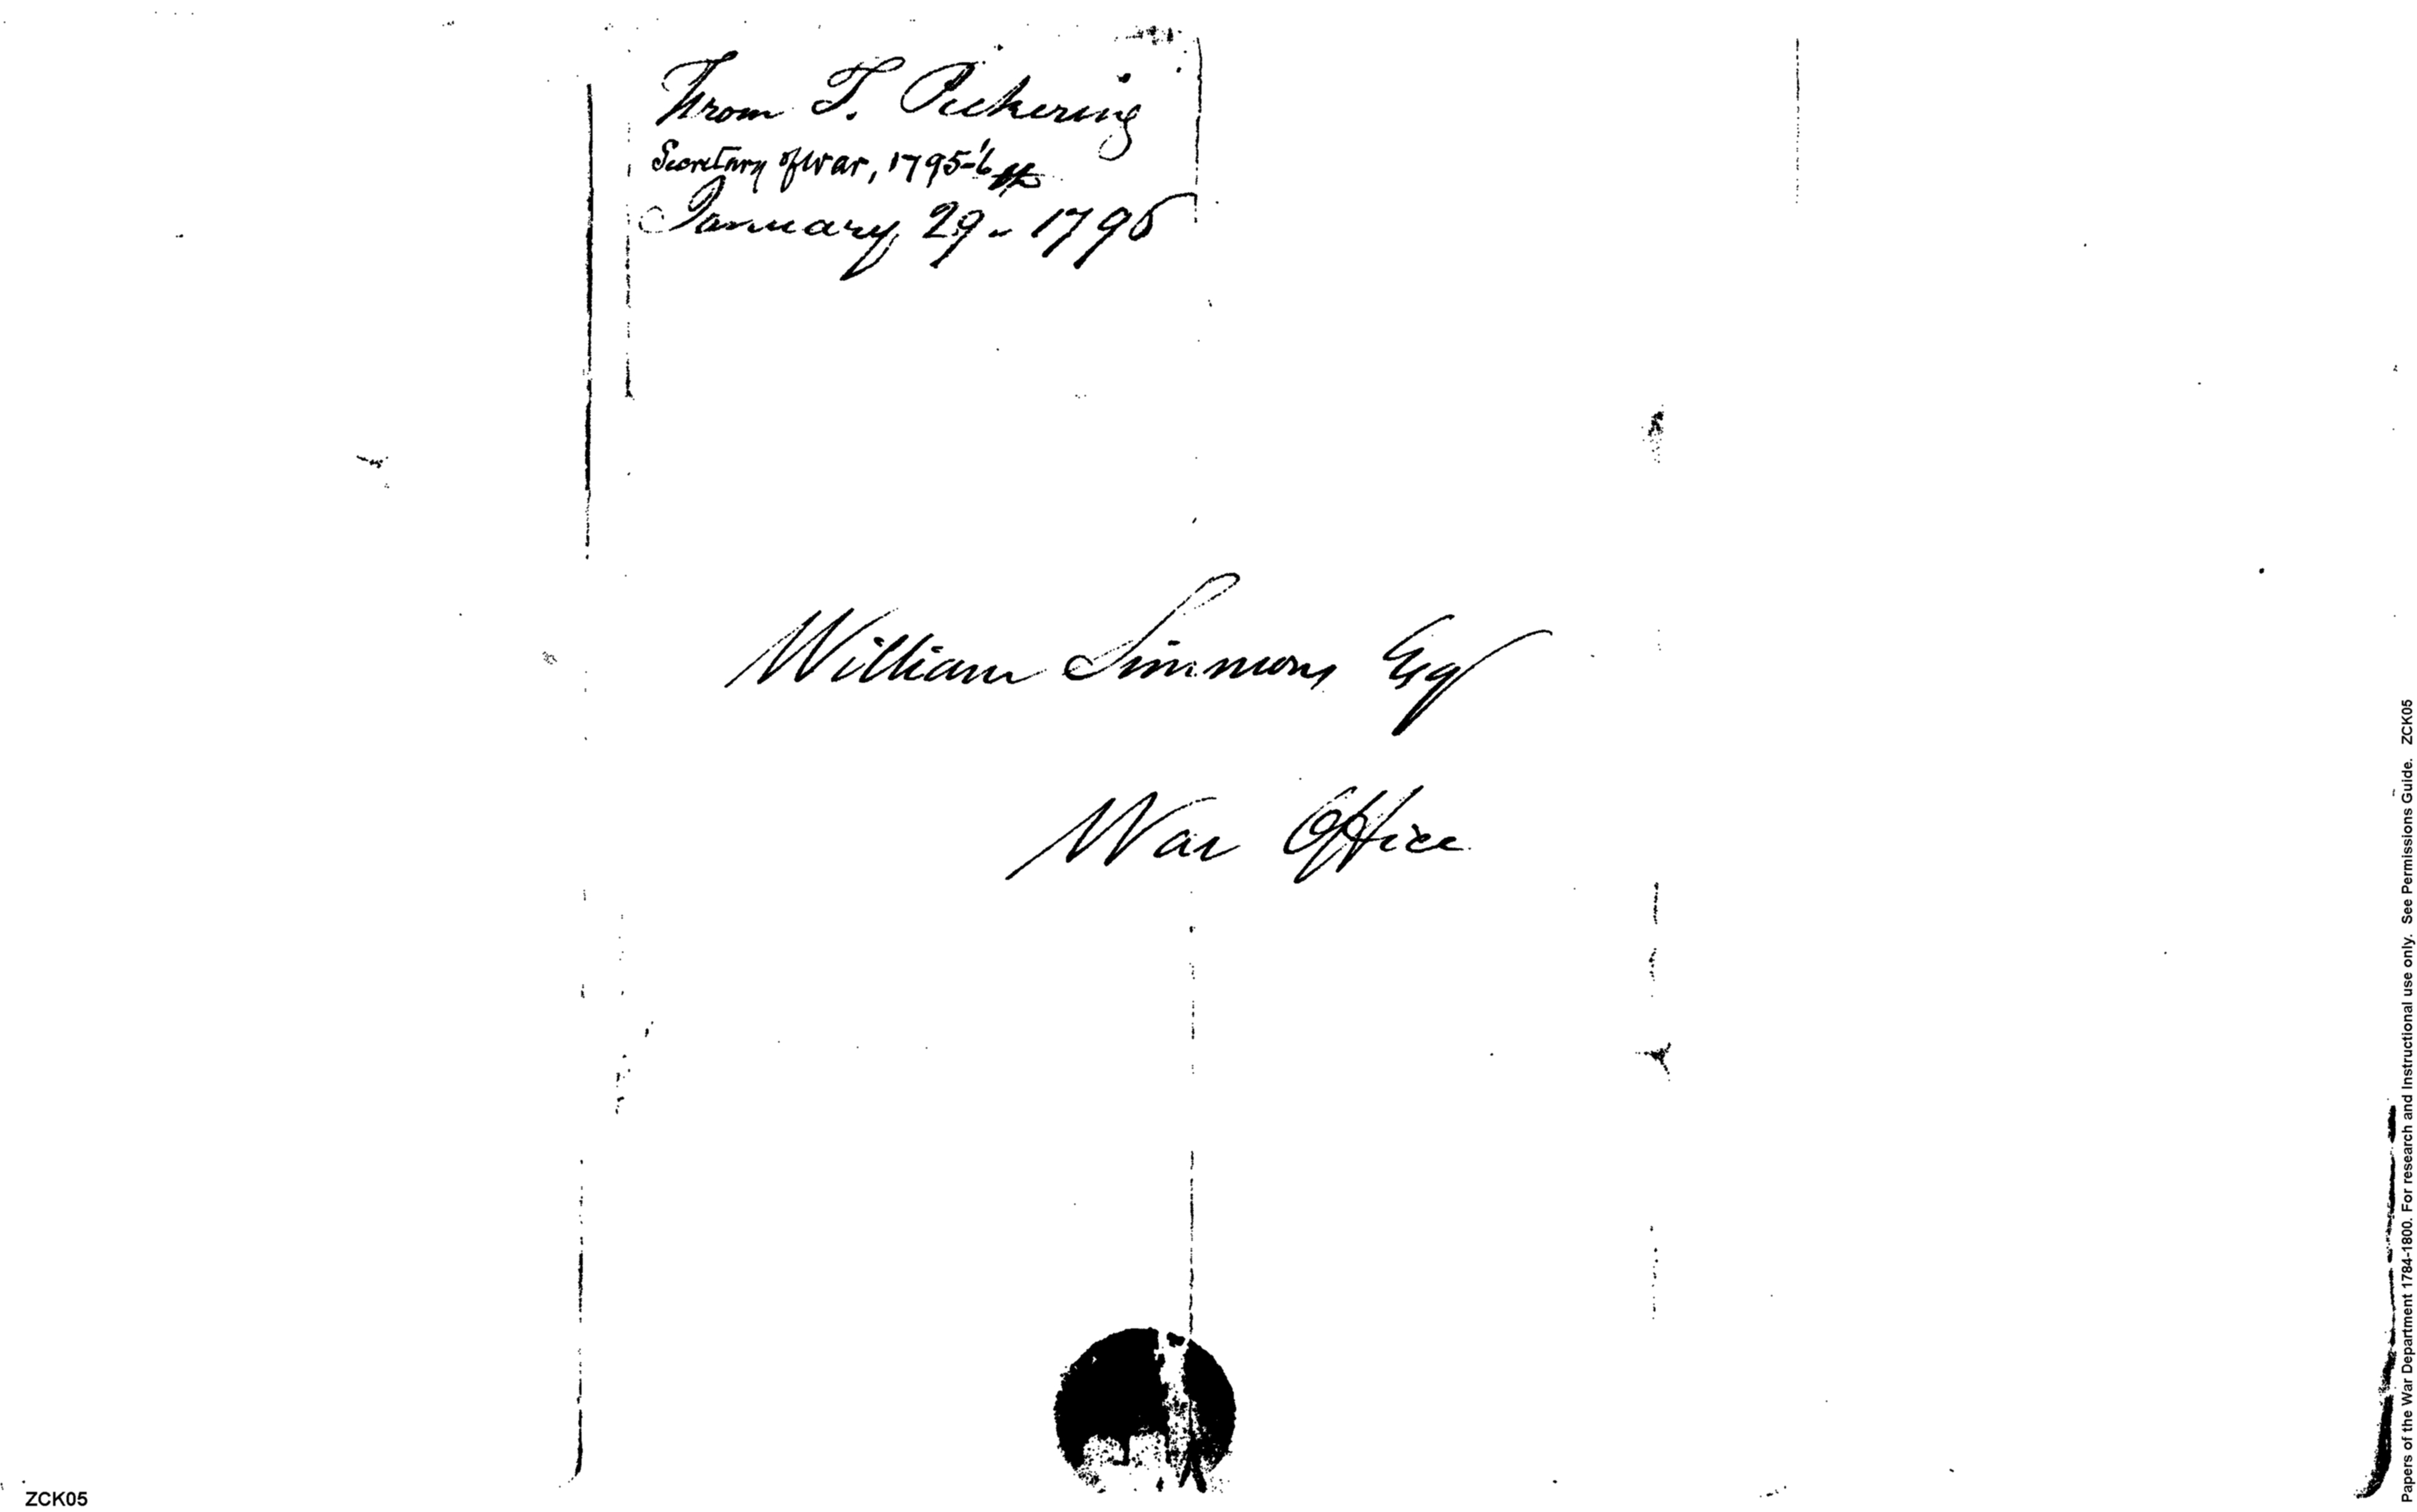 From T. Pickering
Secretary of War, 1795-6
January 29 - 1795
William Simmons Esq
War Office
ZCK05
Papers of the War Department 1784-1800. For research and Instructional use only. See Permissions Guide. ZCK05